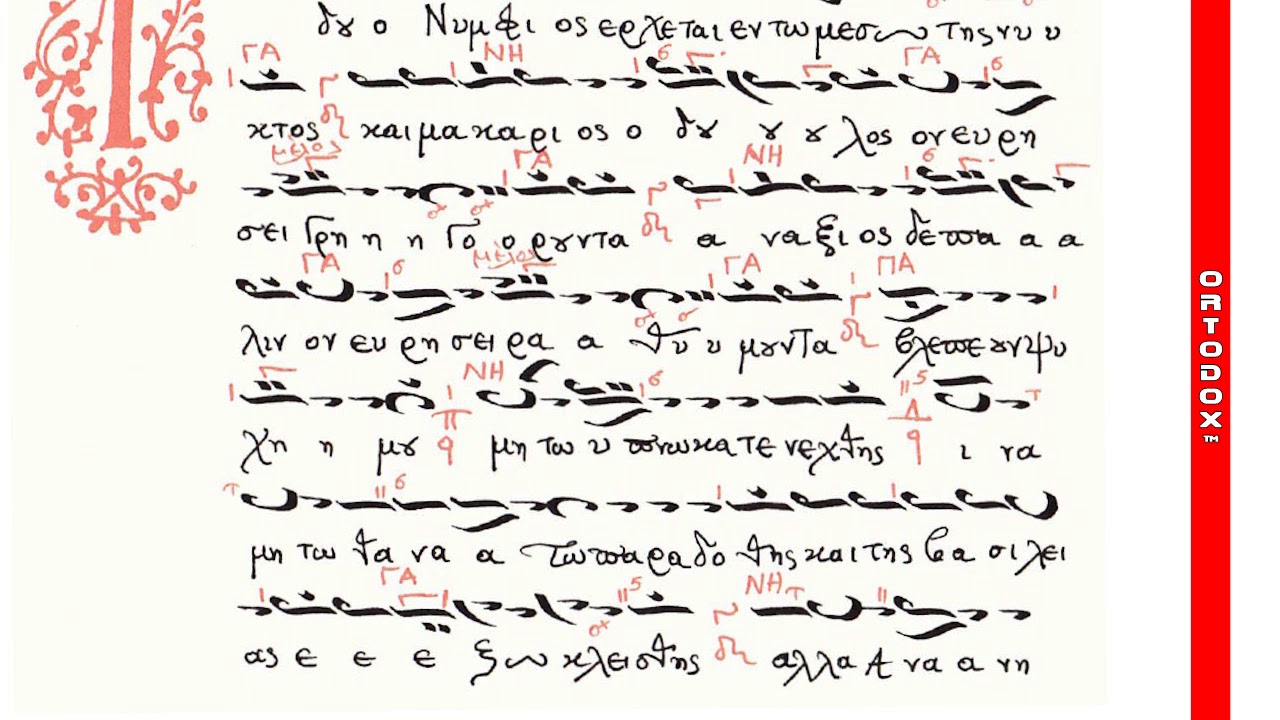 δȣ ο Νυμφι ος ερχεται εν τω μεσω της νυ υ
ΓΑ ΝΗ ΓΑ
κτος και μακαρι ος ο δȣ ȣ ȣ λος ον ευ ρη
μελος ΓΑ ΝΗ
σει Γρη η η Γο ο ρȣντα α ναξι ος δε πα α α
ΓΑ μελος ΓΑ ΠΑ
λιν ον ευ ρη σει ρα α θυ υ μȣντα βλεπε ȣν ψυ
ΝΗ
χη η μȣ μη τω υ πνω κατε νεχθης ι να
μη τω θα να α τω παραδο θης και της βα σι λει
ΓΑ ΝΗ
ας ε ε ε ξω κλεισθης αλλα Α να α νη
ORTODOX™